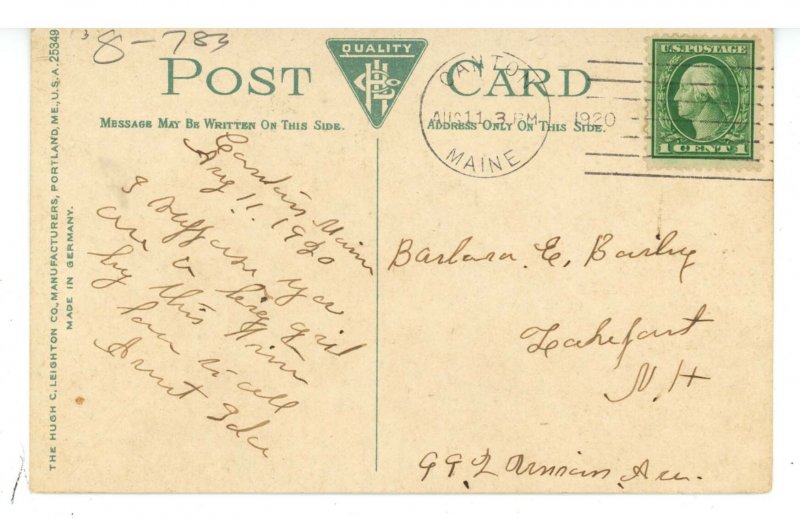 8-783
THE HUGH C. LEIGHTON CO., MANUFACTURERS, PORTLAND, ME., U.S.A. 25349
MADE IN GERMANY.
POST CARD
QUALITY
MESSAGE MAY BE WRITTEN ON THIS SIDE.
ADDRESS ONLY ON THIS SIDE.
CANTON
AUG 11 3 PM
1920
MAINE
U.S. POSTAGE
1 CENT 1
Canton Maine
Aug 11. 1920
I suppose you
are a big girl
by this time
love to all
Aunt Ida
Barbara E,
Lakeport
N. H
99 Union Ave.